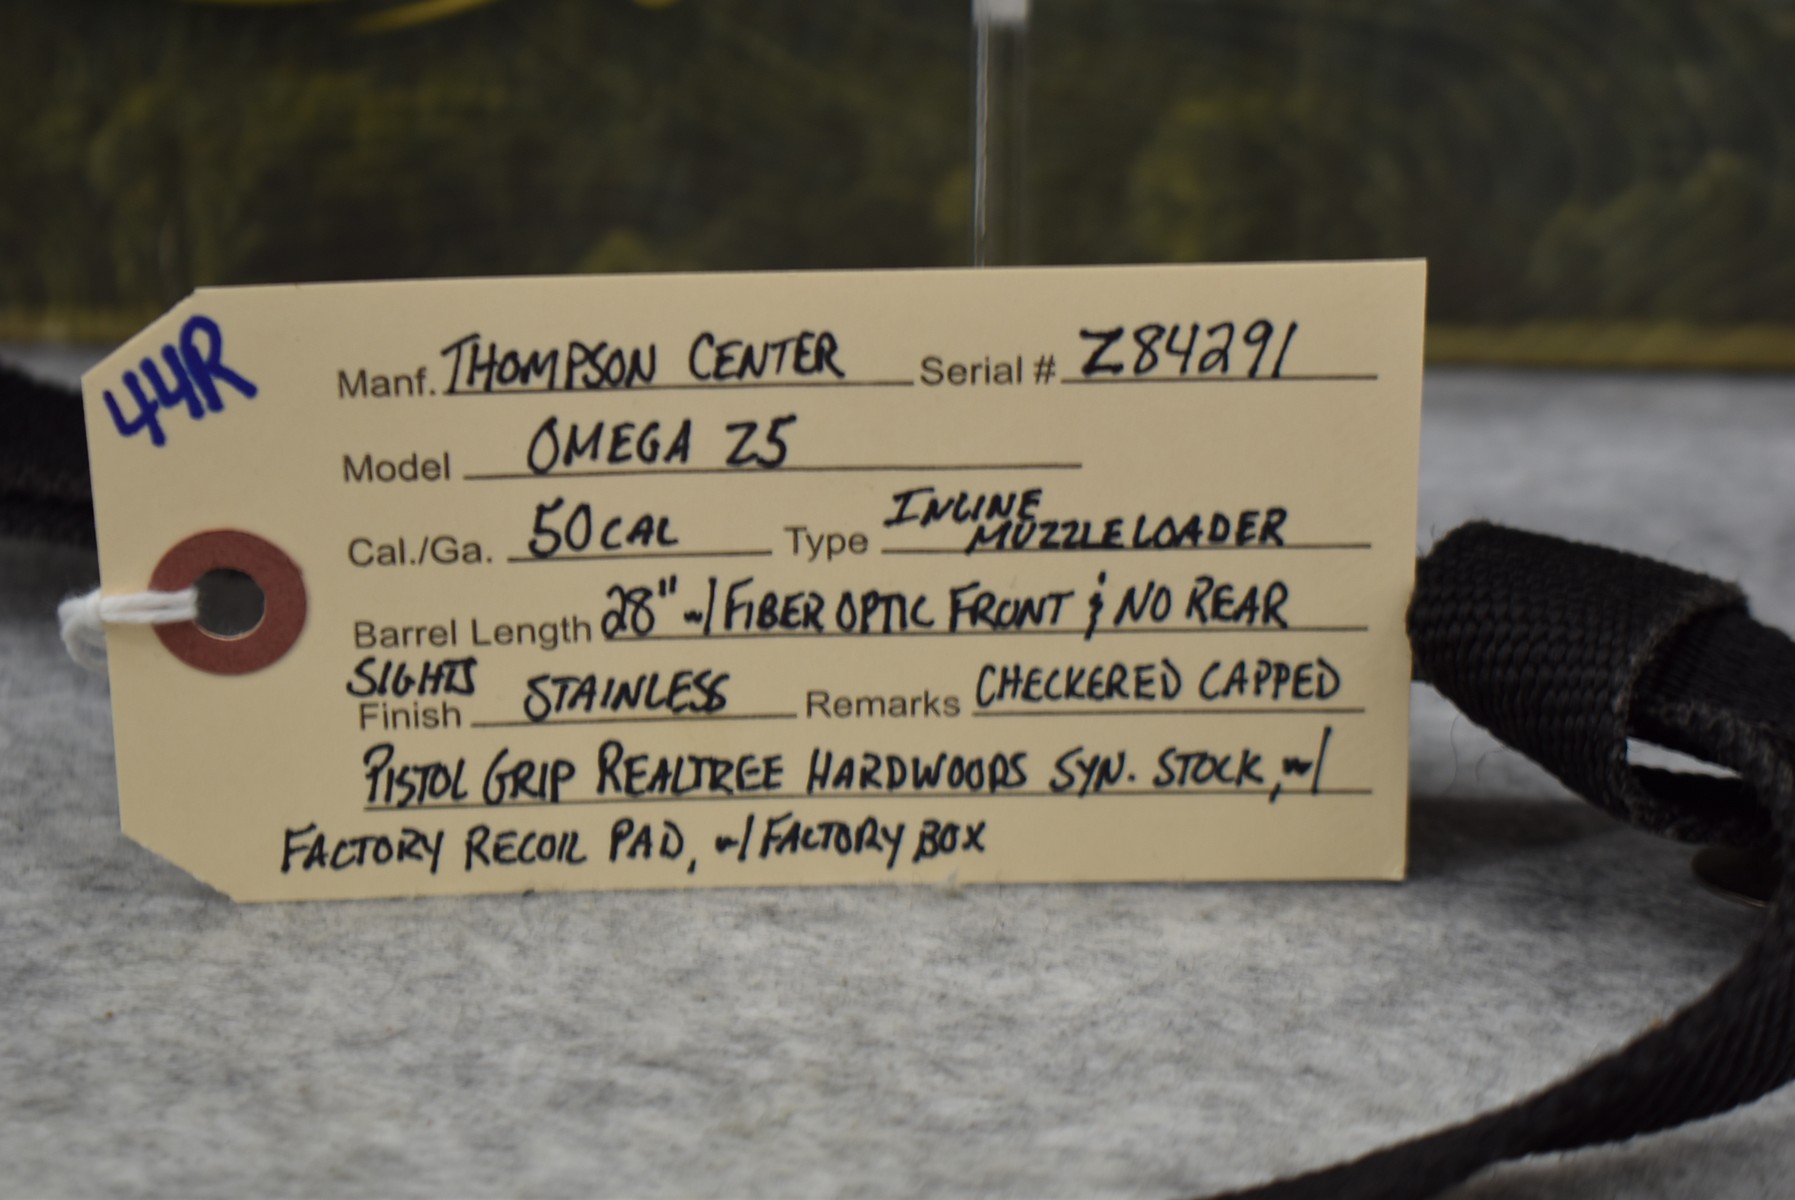 44R
Manf. THOMPSON CENTER Serial # Z84291
Model OMEGA Z5
Cal./Ga. 50 CAL Type INLINE MUZZLELOADER
Barrel Length 28" w/ FIBER OPTIC FRONT & NO REAR
SIGHTS
Finish STAINLESS Remarks CHECKERED CAPPED
PISTOL GRIP REALTREE HARDWOODS SYN. STOCK, w/
FACTORY RECOIL PAD, w/ FACTORY BOX